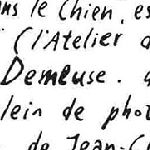 ns le Chien, es
(l'Atelier d
Demeuse. d
lein de phot
de Jean-C